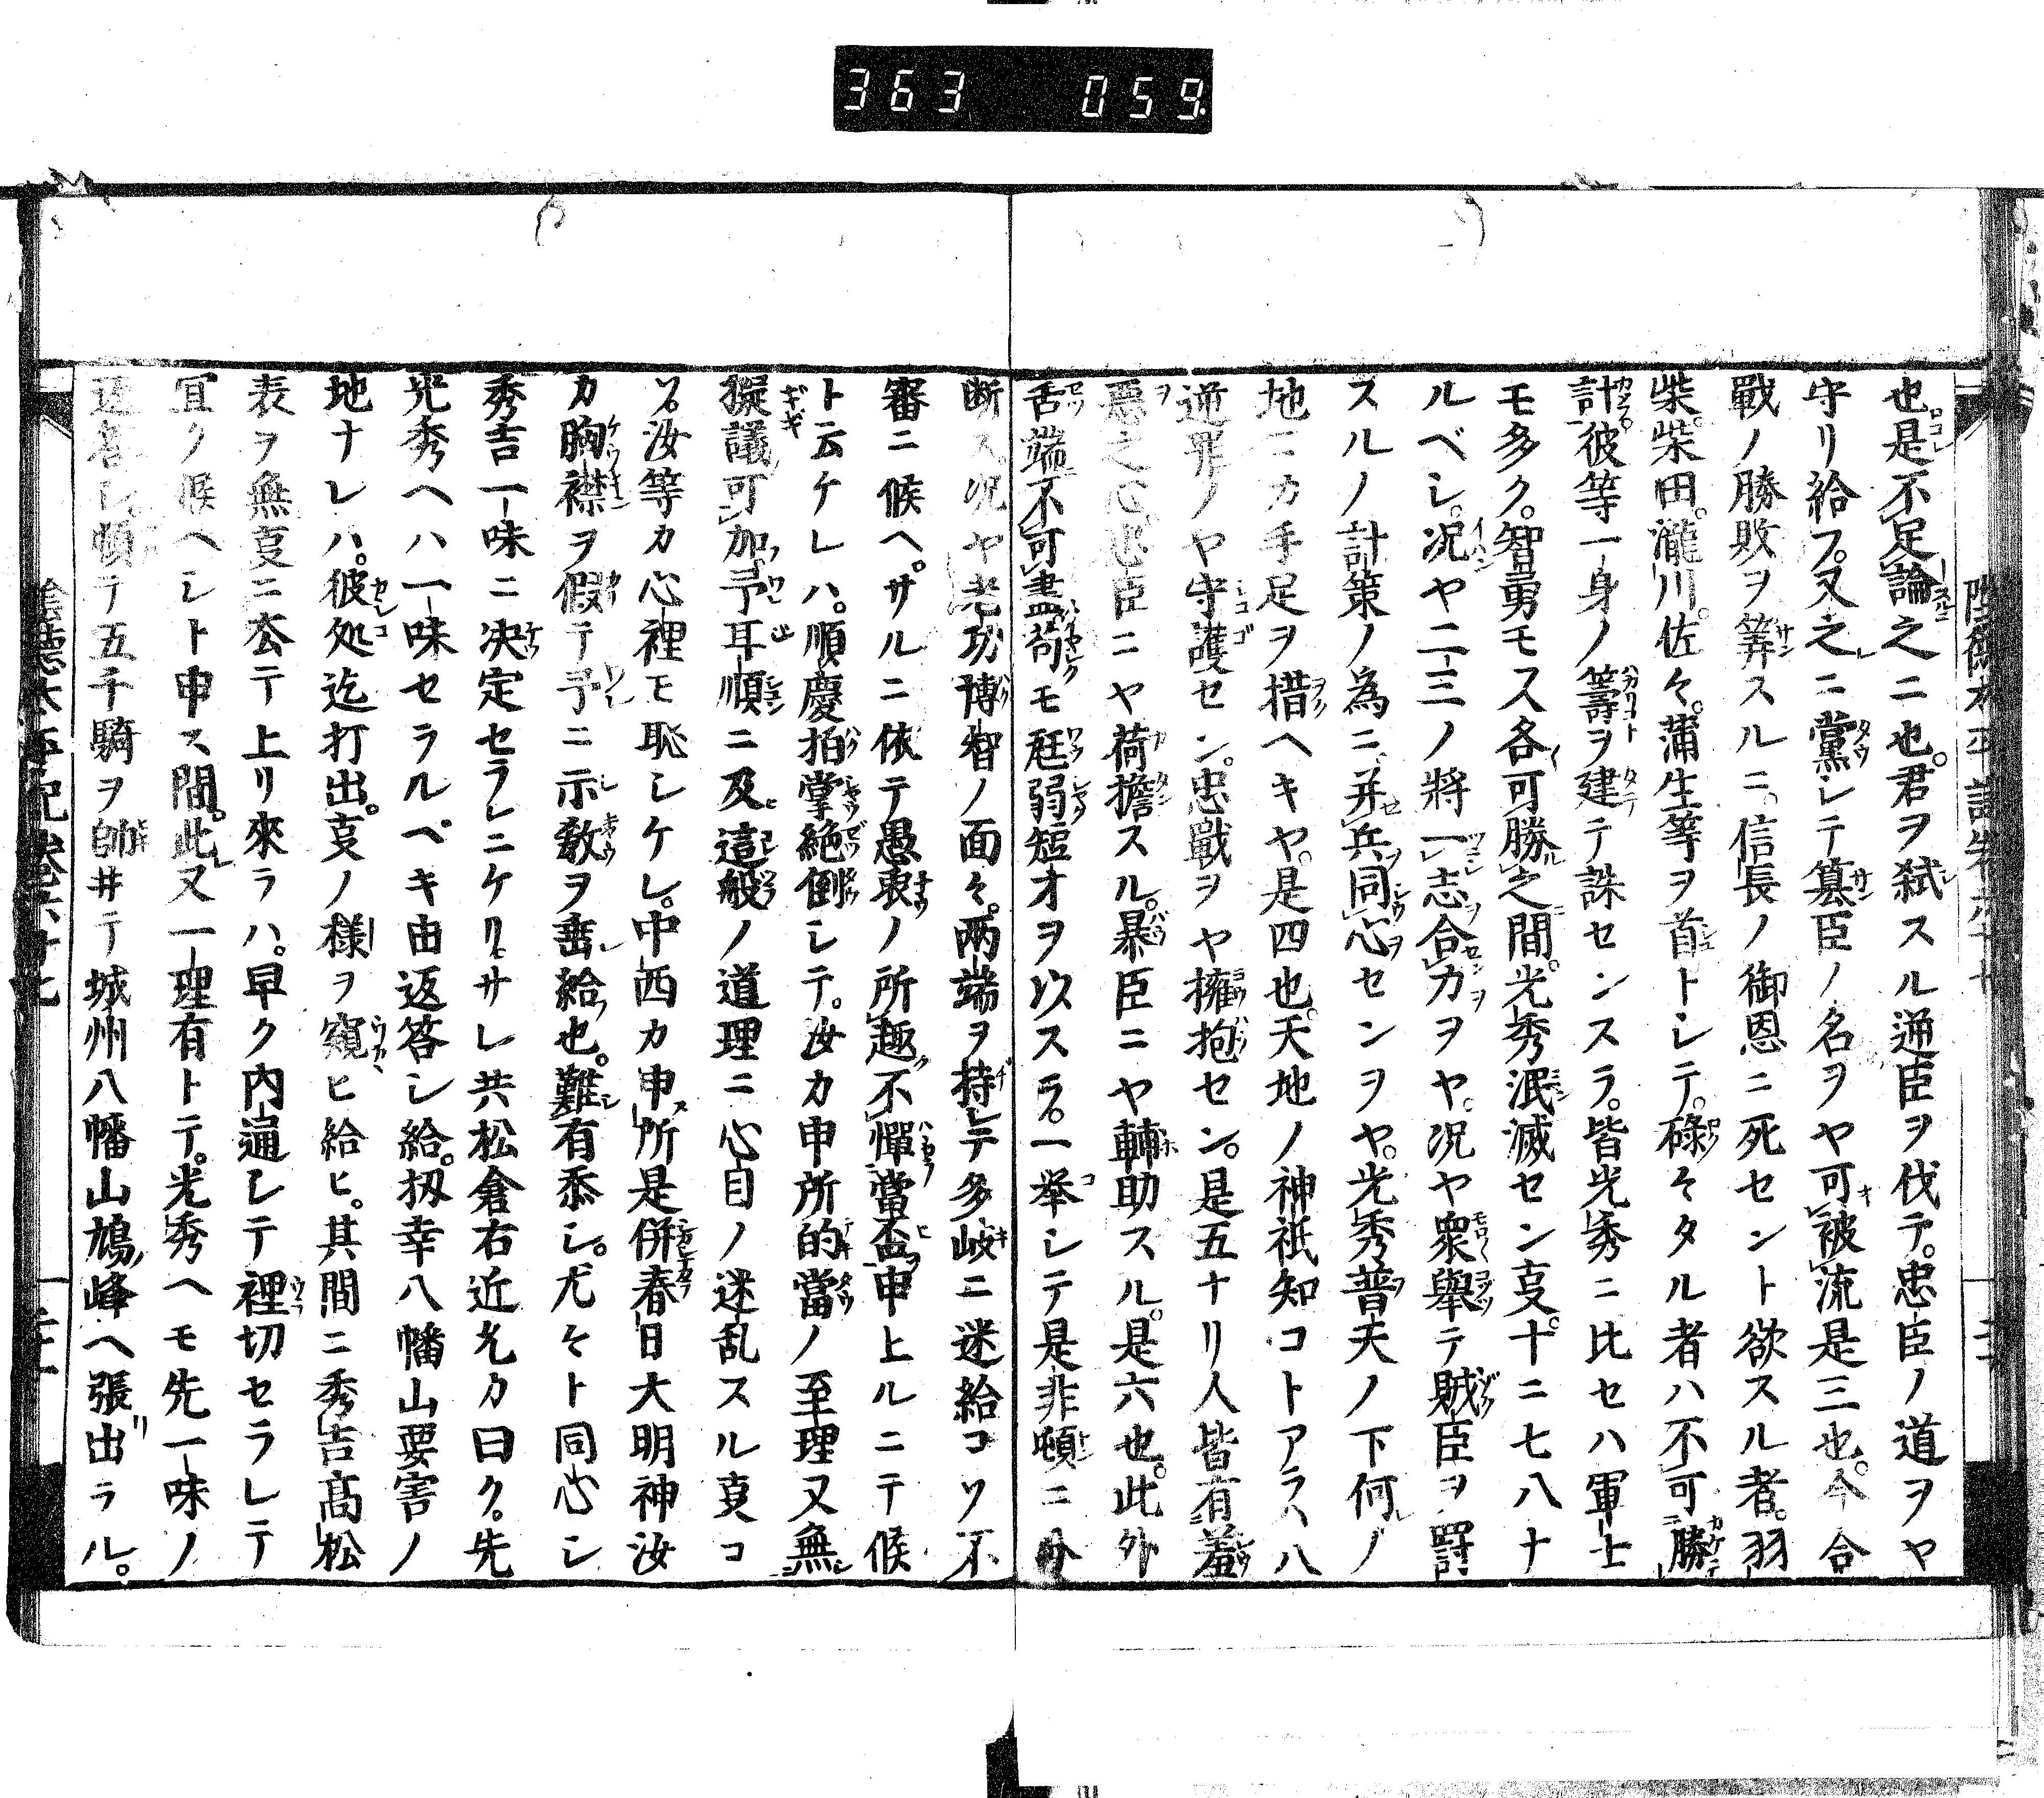 363 059
也是不足論之二也。君ヲ弑スル逆臣ヲ伐テ。忠臣ノ道ヲヤ
守リ給フ。又之ニ黨シテ簒臣ノ名ヲヤ可被流是三也。今合
戰ノ勝敗ヲ筭スルニ。信長ノ御恩ニ死セント欲スル者。羽
柴。柴田。瀧川。佐々。蒲生等ヲ首トシテ。碌々タル者ハ不可勝
計。彼等一身ノ籌ヲ建テ誅センスラ。皆光秀ニ比セハ軍士
モ多ク。智勇モス各可勝之間。光秀泯滅セン亊。十ニ七八ナ
ルベシ。况ヤ二三ノ將一志合力ヲヤ。况ヤ衆舉テ賊臣ヲ罸
スルノ計策ノ為ニ、并兵同心センヲヤ。光秀普天ノ下何ノ
地ニカ手足ヲ措ヘキヤ。是四也。天地ノ神祇知コトアラハ八
逆罪ノヤ守護セン。忠戰ヲヤ擁抱セン。是五ナリ人皆有羞
悪之心忠臣ニヤ荷擔スル。暴臣ニヤ輔助スル。是六也。此外
舌端不可盡苟モ尩弱短才ヲ以スラ。一挙シテ是非頓ニ分
断ス况ヤ老功博智ノ面々。兩端ヲ持シテ多岐ニ迷給コソ不
審ニ候ヘ。サルニ依テ愚衷ノ所趣不憚當盃申上ルニテ候
ト云ケレハ。順慶拍掌絶倒シテ。汝カ申所的當ノ至理又無
擬議可加予耳順ニ及這般ノ道理ニ心自ノ迷乱スル亊コ
ソ。汝等カ心裡モ恥シケレ。中西カ申所是併春日大明神汝
カ胸襟ヲ假テ予ニ示教ヲ垂給也。難有忝シ。尤々ト同心シ
秀吉一味ニ决定セラレニケリ。サレ共松倉右近允カ曰ク。先
光秀ヘハ一味セラルペキ由返答シ給。扨幸八幡山要害ノ
地ナレハ。彼処迄打出。亊ノ様ヲ窺ヒ給ヒ。其間ニ秀吉髙松
表ヲ無亊ニ厺テ上リ來ラハ。早ク内通シテ裡切セラレテ
冝ク候ヘシト申ス間。此又一理有トテ。光秀ヘモ先一味ノ
返答シ頓テ五千騎ヲ帥井テ城州八幡山鳩峰ヘ張出ラル。